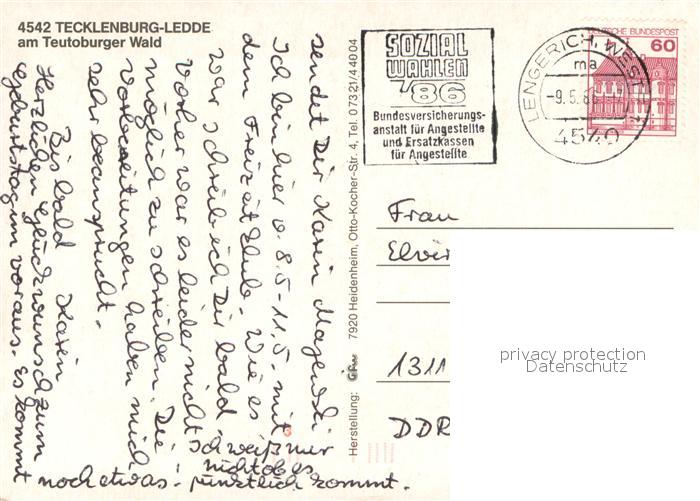 4542 TECKLENBURG-LEDDE
am Teutoburger Wald
Herzlichen Glückwunsch zum
Geburtstag im voraus. Es kommt
noch etwas.
sendet Dir Karin Majewski
Ich bin hier v. 8.5.-11.5. mit
dem Freizeitclub. Wie es
war schreib ich Dir bald.
Vorher war es leider nicht
möglich zu schreiben. Die
Vorbereitungen haben mich
sehr beansprucht.
Bis bald Karin
Ich weiß nur
nicht ob es
pünktlich kommt.
Herstellung: 7920 Heidenheim, Otto-Kocher-Str. 4, Tel. 07321/44004
SOZIAL
WAHLEN
'86
Bundesversicherungs-
anstalt für Angestellte
und Ersatzkassen
für Angestellte
LENGERICH, WESTF
ma
-9.5.86
4540
DEUTSCHE BUNDESPOST
60
Frau
Elvir
1311
DDR
privacy protection
Datenschutz